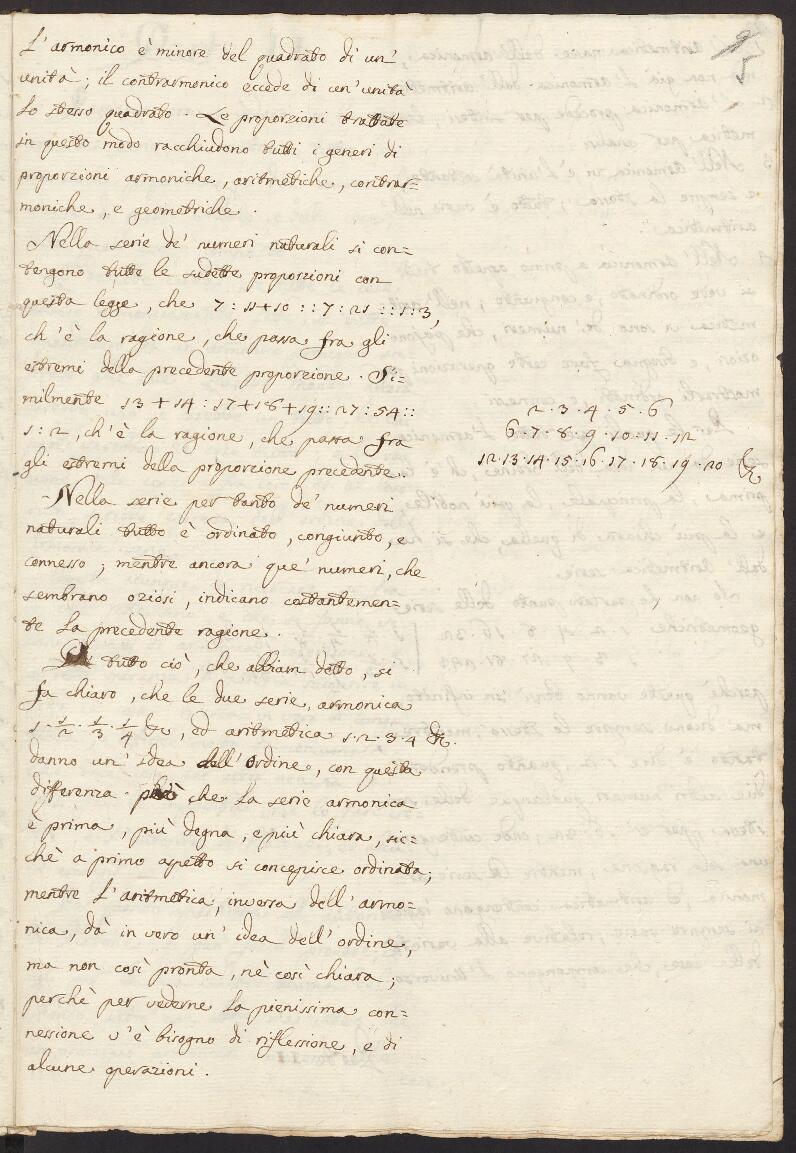 5
L'armonico è minore del quadrato di un'
unità; il contrarmonico eccede di un'unità
lo stesso quadrato. Le proporzioni trattate
in questo modo racchiudono tutti i generi di
proporzioni armoniche, aritmetiche, contrar=
moniche, e geometriche.
Nella serie de' numeri naturali si con=
tengono tutte le sudette proporzioni con
questa legge, che 7:11+10::7:21::1:3,
ch'è la ragione, che passa fra gli
estremi della precedente proporzione. Si=
milmente 13+14:17+18+19::27:54::
1:2, ch'è la ragione, che passa fra
gli estremi della proporzione precedente.
2.3.4.5.6
6.7.8.9.10.11.12
12.13.14.15.16.17.18.19.20 &c
Nella serie per tanto de' numeri
naturali tutto è ordinato, congiunto, e
connesso; mentre ancora que' numeri, che
sembrano oziosi, indicano costantemen=
te la precedente ragione.
Di tutto ciò, che abbiam detto, si
fa chiaro, che le due serie, armonica
1.1/2.1/3.1/4 &c, ed aritmetica 1.2.3.4 &c.
danno un'idea dell'ordine, con questa
differenza che la serie armonica
è prima, più degna, e più chiara, sic=
chè a primo aspetto si concepisce ordinata;
mentre l'aritmetica, inversa dell'armo=
nica, dà in vero un'idea dell'ordine,
ma non così pronta, nè così chiara;
perchè per vederne la pienissima con=
nessione v'è bisogno di riflessione, e di
alcune operazioni.